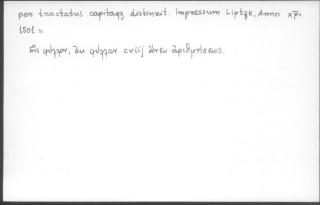 per tractatus capitaqz distinxit. Impressum Liptzk, Anno xp̄i
1501 „
Εἰς φύλλον, ἐκ φύλλων cviij ἄνευ ἀριθμήσεως.